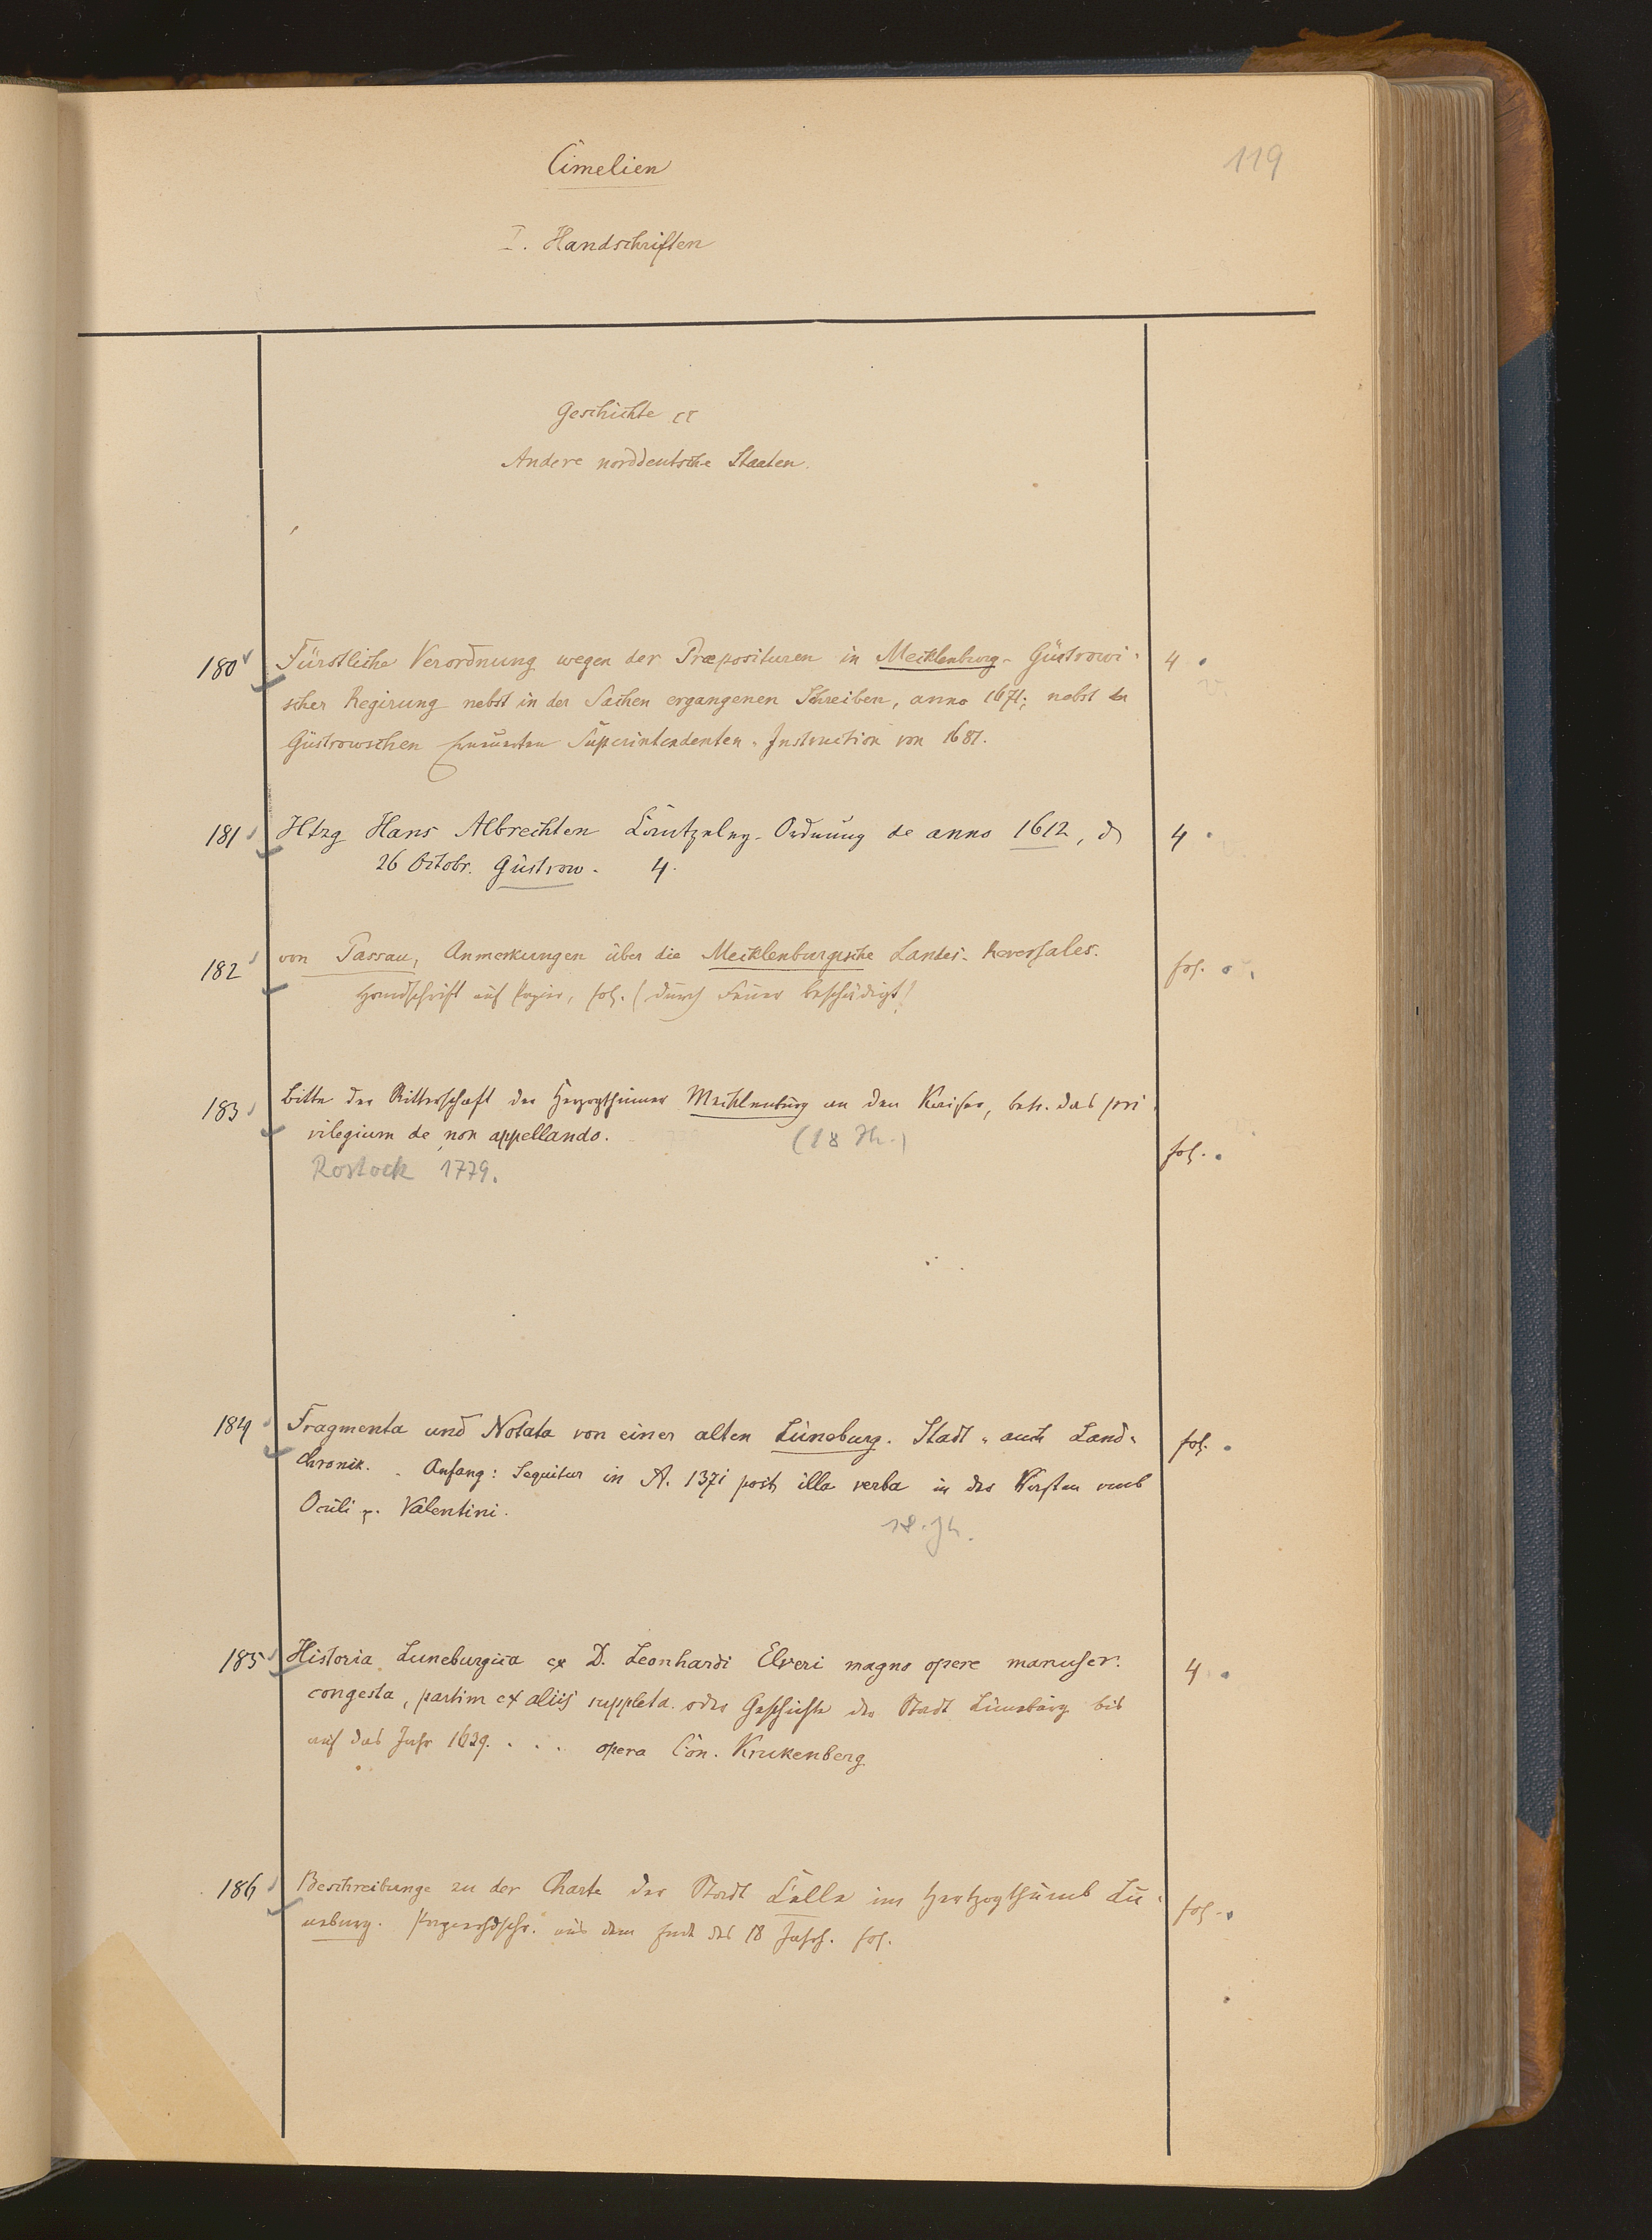 Cimelien
119
I. Handschriften
Geschichte
Andere norddeutsche Staaten.
180 Fürstliche Verordnung wegen der Præposituren in Mecklenburg- Güstrowi- 4
scher Regirung nebst in der Sachen ergangenen Schreiben, anno 1671; nebst der
Güstrowschen Superintendenten-Instruction von 1681.
181 Htzg Hans Albrechten Cantzeley-Ordnung de anno 1612, d 4
26 Octobr. Güstrow. 4.
182 von Passau, Anmerkungen über die Mecklenburgische Landes-Reversales. fol.
Handschrift auf Papier, fol. (durch Feuer beschädigt!
183 Bitte der Ritterschaft der Herzogthümer Mecklenburg an den Kaiser, betr. das pri-
vilegium de non appellando. (18 Jh.) fol.
Rostock 1779.
184 Fragmenta und Notata von einer alten Lüneburg. Stadt- auch Land- fol.
chronik. Anfang: Sequitur in A. 1371 post illa verba in der Vasten umb
Oculi Valentini.
18. Jh.
185 Historia Luneburgica ex D. Leonhardi Elveri magno opere manuscr. 4
congesta, partim ex aliis suppleta oder Geschichte der Stadt Lüneburg bis
auf das Jahr 1639. . . . opera Con. Krukenberg
186 Beschreibunge zu der Charte der Stadt Celle im Hertzogthumb Lü- fol.
neburg. Papierhdschr. aus dem Ende des 18 Jahrh. fol.